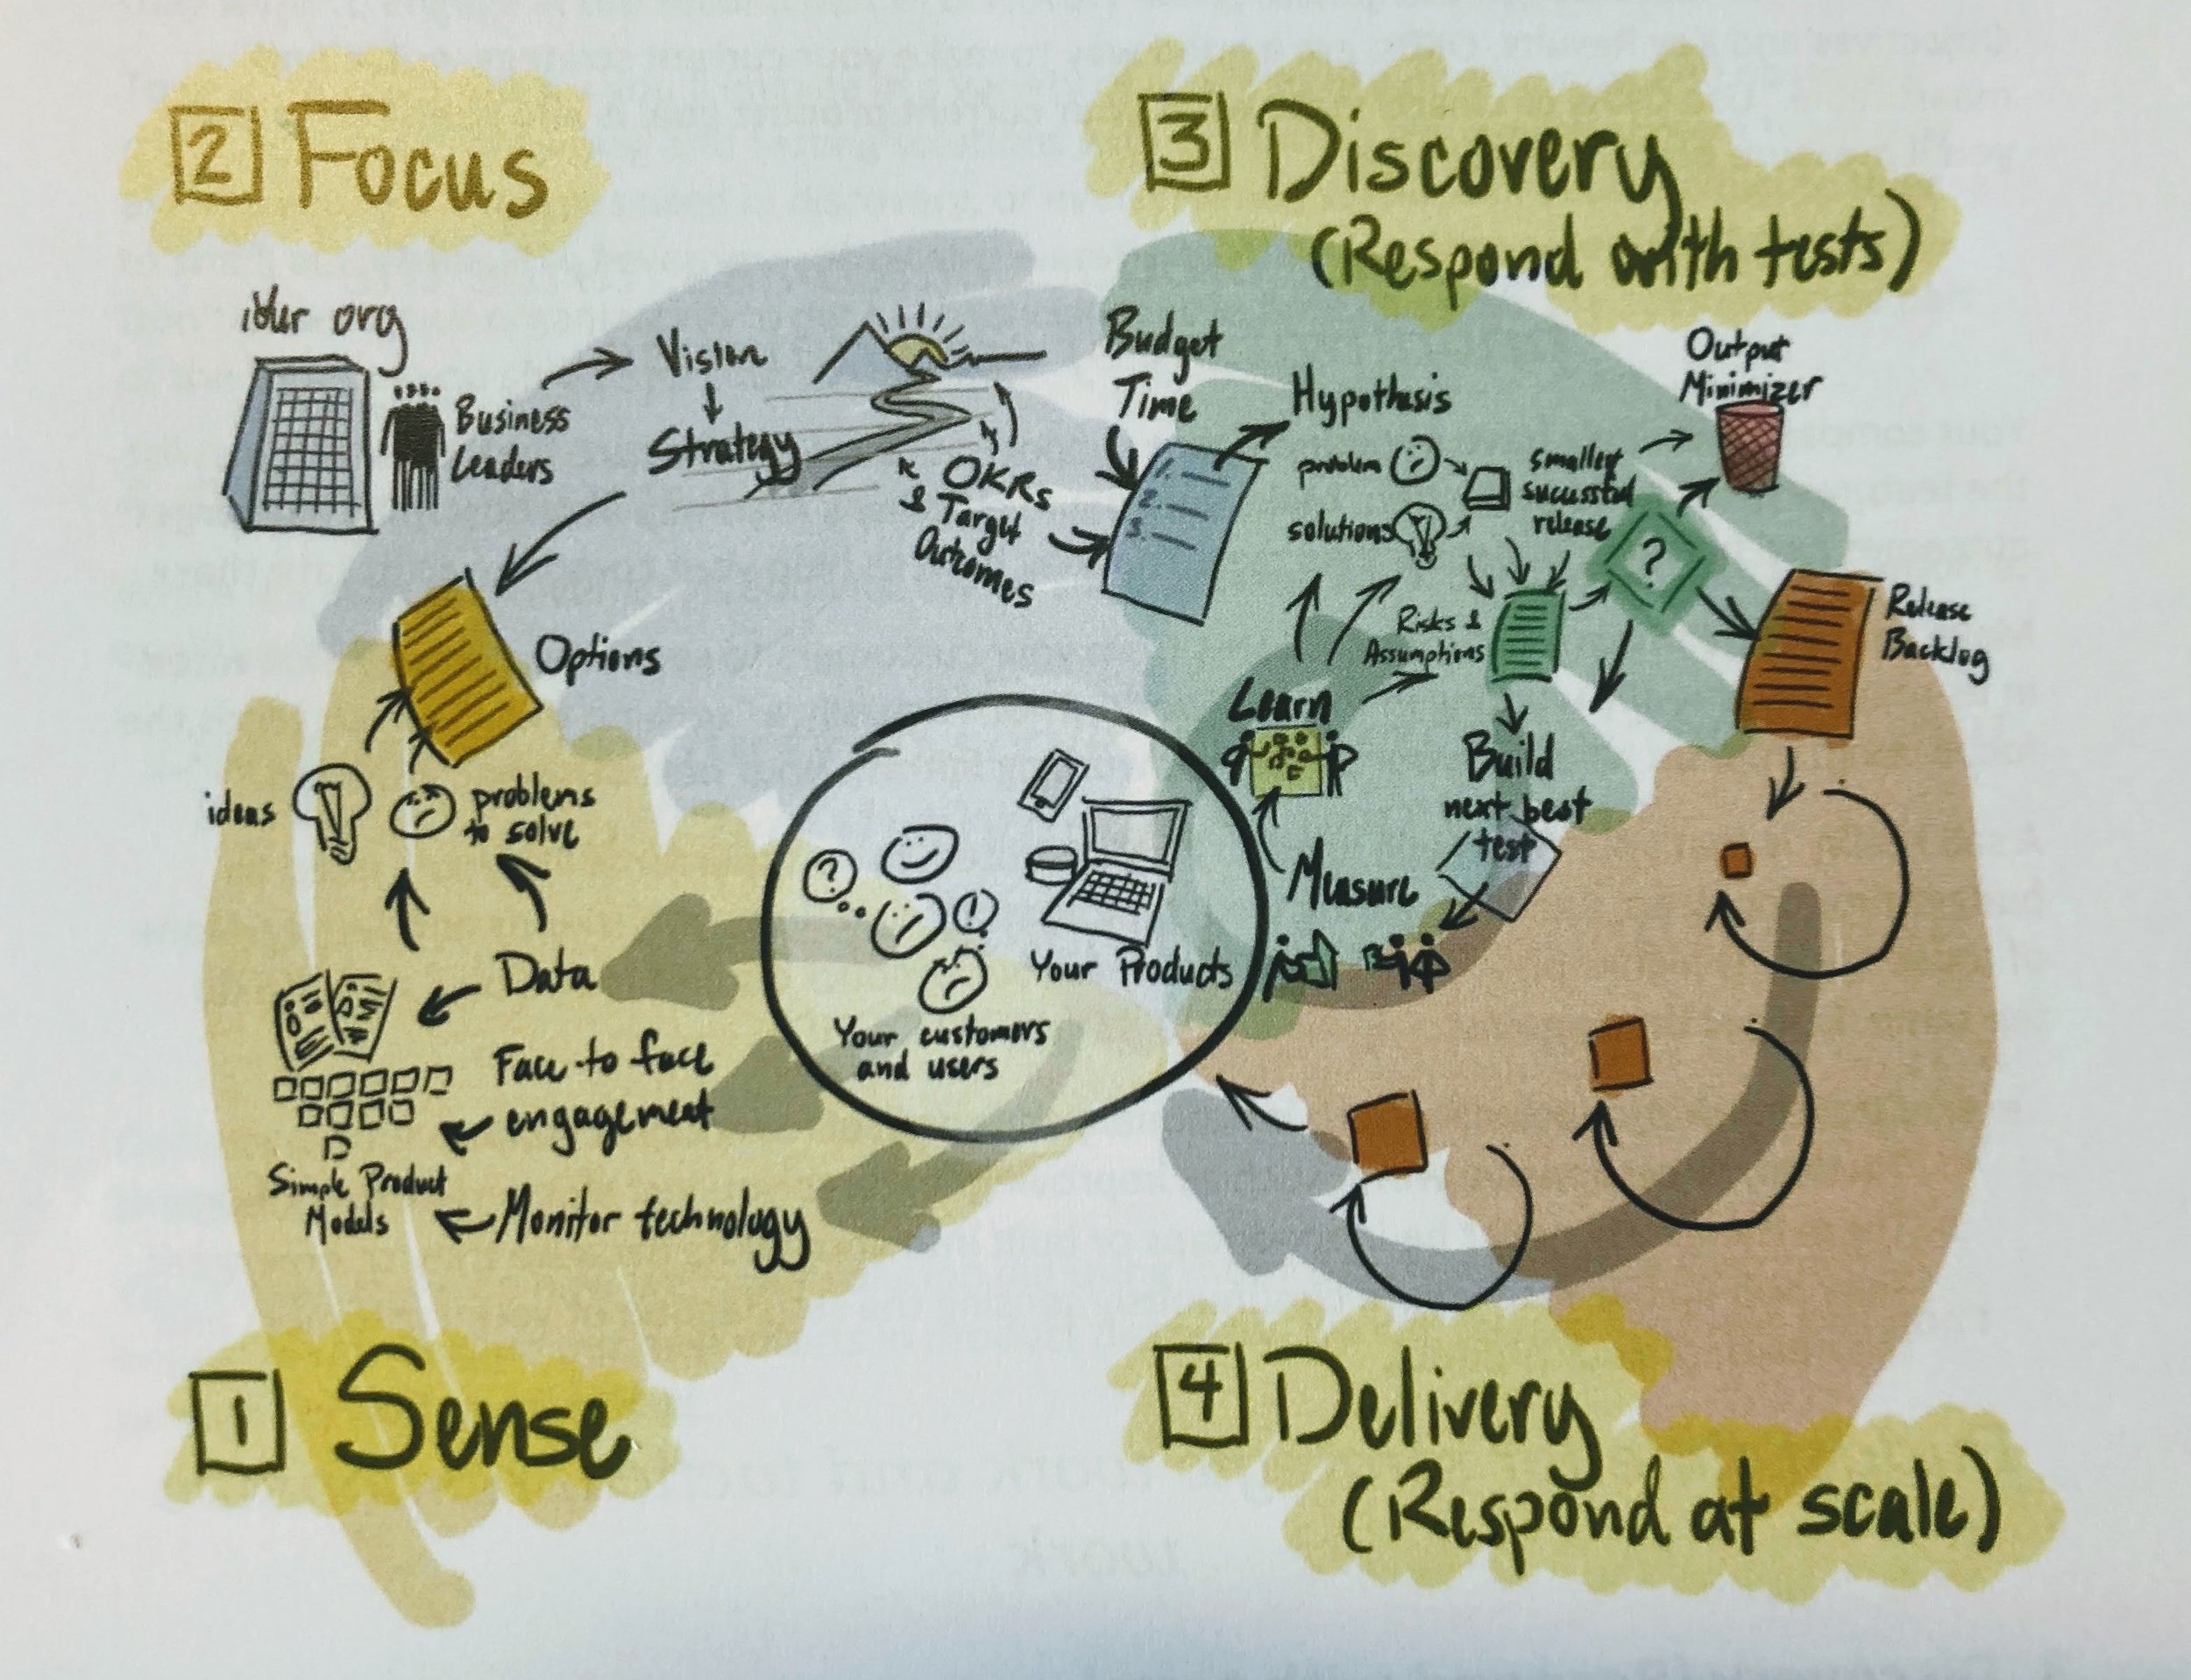 2 Focus
Your org
Business
Leaders
Vision
Strategy
OKRs
& Target
Outcomes
Options
3 Discovery
(Respond with tests)
Budget
Time
1.
2.
3.
Hypothesis
problem
solutions
smallest
successful
release
Output
Minimizer
?
Risks &
Assumptions
Release
Backlog
Learn
Build
next best
test
Measure
ideas
problems
to solve
Data
Face to face
engagement
Monitor technology
Simple Product
Models
?
!
Your Products
Your customers
and users
1 Sense
4 Delivery
(Respond at scale)